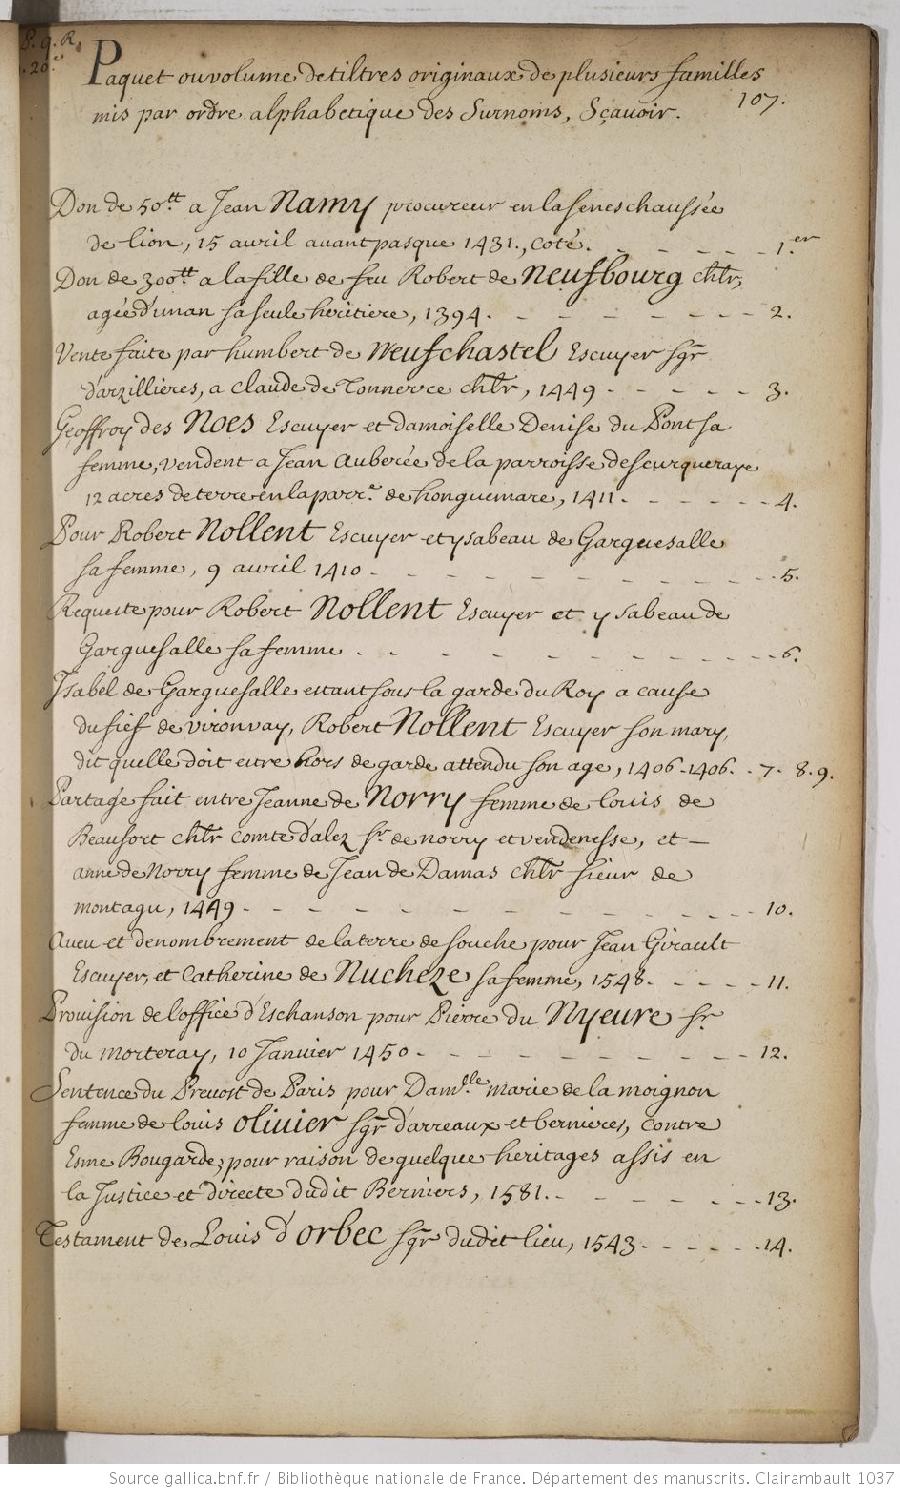 P. q. R.
20.e
Paquet ou volume de tiltres originaux de plusieurs familles
mis par ordre alphabetique des Surnoms, Sçavoir.
107.
Don de 50tt a Jean Namy procureur en la seneschaussée
de lion, 15 avril avant pasque 1431., coté. - - - - 1.er
Don de 300tt a la fille de feu Robert de Neufbourg chlr,
agée d'un an sa seule heritiere, 1394. - - - - - - - 2.
Vente faite par humbert de Neufchastel Escuyer sgr
d'arzillieres, a claude de Tonnerre chlr, 1449 - - - - - 3.
Geoffroy des Noes Escuyer et damoiselle Denise du Pont sa
femme, vendent a Jean Auberée de la parroisse de seurqueraye
12 acres de terre en la parr.e de honguemare, 1411. - - - - - - 4.
Pour Robert Nollent Escuyer et ysabeau de Garguesalle
sa femme, 9 avril 1410 - - - - - - - - - - - 5.
Requeste pour Robert Nollent Escuyer et ysabeau de
Garguesalle sa femme - - - - - - - - - - 6.
Isabel de Garguesalle estant sous la garde du Roy a cause
du fief de vironvay, Robert Nollent Escuyer son mary,
dit quelle doit etre hors de garde attendu son age, 1406-1406. - 7. 8. 9.
Partage fait entre Jeanne de Norry femme de louis de
Beaufort chlr comte d'alez sr de norry et vendenesse, et -
anne de Norry femme de Jean de Damas chlr sieur de
montagu, 1449 - - - - - - - - - - - - - 10.
Aveu et denombrement de la terre de souche pour Jean Girault
Escuyer, et Catherine de Nucheze sa femme, 1548. - - - - - 11.
Provision de l'office d'Eschanson pour Pierre du Nyeure sr
du morteray, 10 Janvier 1450 - - - - - - - - - - 12.
Sentence du Prevost de Paris pour Dam.lle marie de la moignon
femme de louis olivier sgr d'arreaux et bernieres, contre
Esme Bougarde, pour raison de quelque heritages assis en
la Justice et directe dudit Berniers, 1581. - - - - - - - 13.
Testament de Louis d'orbec sgr dudit lieu, 1543 - - - - - - 14.
Source gallica.bnf.fr / Bibliothèque nationale de France. Département des manuscrits. Clairambault 1037